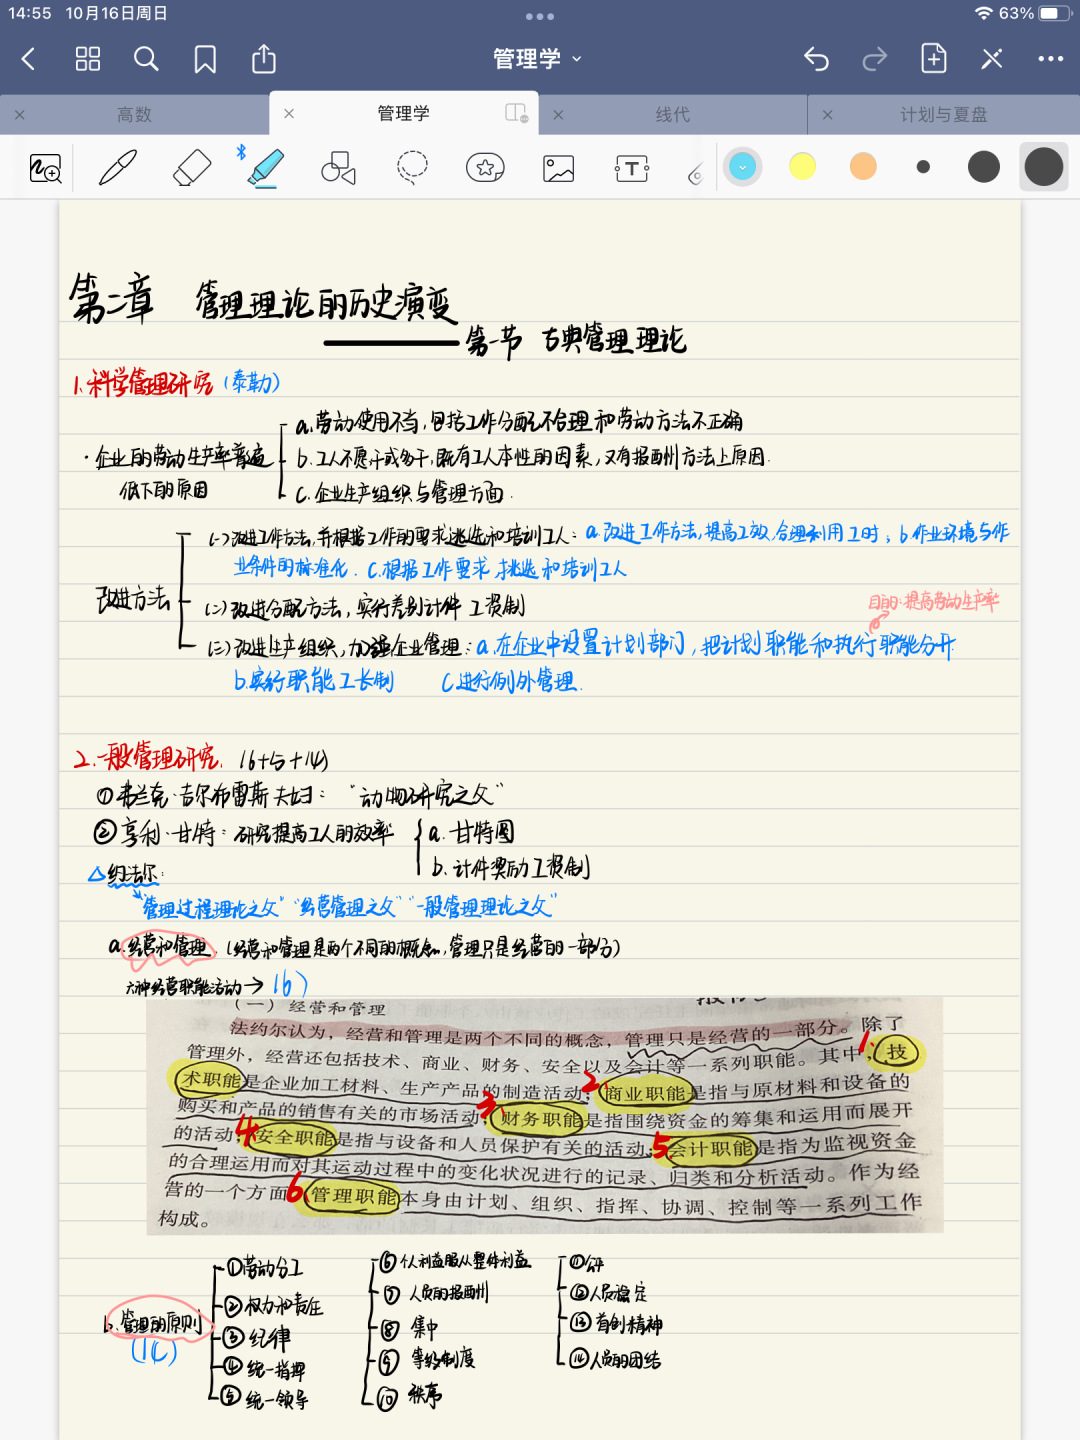 14:55 10月16日周日
63%
管理学
高数
管理学
线代
计划与夏盘
第二章 管理理论的历史演变
——第一节 古典管理理论
1.科学管理研究(泰勒)
·企业的劳动生产率普遍
低下的原因
a.劳动使用不当,包括工作分配不合理和劳动方法不正确
b.工人不愿干或少干,既有工人本性的因素,又有报酬州方法上原因.
C.企业生产组织与管理方面.
改进方法
(一)改进工作方法,并根据工作的要求挑选和培训工人:a.改进工作方法,提高工效,合理利用工时;b.作业环境与作
业条件的标准化.C.根据工作要求,挑选和培训工人
(二)改进分配方法,实行差别计件工资制
目的:提高劳动生产率
(三)改进生产组织,加强企业管理:a.在企业中设置计划部门,把计划职能和执行职能分开
b.实行职能工长制 C.进行例外管理.
2.一般管理研究.(6+5+14)
①弗兰克·吉尔布雷斯夫妇:“动物研究之父”
②亨利·甘特:研究提高工人的效率
a.甘特图
b.计件奖励工资制
△约法尔:
“管理过程理论之父”“经营管理之父”“一般管理理论之父”
a.经营和管理.(经营和管理是两个不同的概念,管理只是经营的一部分)
六种经营职能活动→(6)
(一)经营和管理
法约尔认为,经营和管理是两个不同的概念,管理只是经营的一部分。除了
管理外,经营还包括技术、商业、财务、安全以及会计等一系列职能。其中,1.技
术职能是企业加工材料、生产产品的制造活动;2.商业职能是指与原材料和设备的
购买和产品的销售有关的市场活动;3.财务职能是指围绕资金的筹集和运用而展开
的活动;4安全职能是指与设备和人员保护有关的活动;5会计职能是指为监视资金
的合理运用而对其运动过程中的变化状况进行的记录、归类和分析活动。作为经
营的一个方面,6管理职能本身由计划、组织、指挥、协调、控制等一系列工作
构成。
b.管理的原则
(14)
①劳动分工
②权力和责任
③纪律
④统一指挥
⑤统一领导
⑥个人利益服从整体利益
⑦人员的报酬州
⑧集中
⑨等级制度
⑩秩序
⑪公平
⑫人员稳定
⑬首创精神
⑭人员的团结